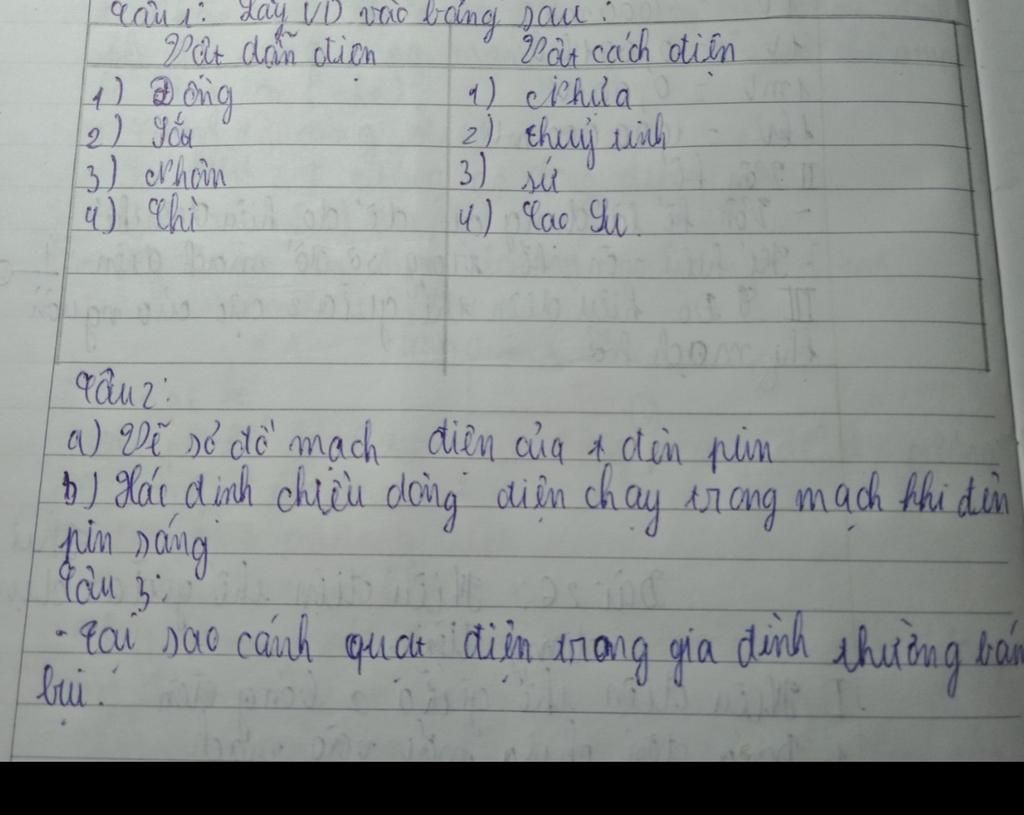 Câu 1: Lấy VD vào bảng sau:
Vật dẫn điện Vật cách điện
1) Đồng 1) Nhựa
2) Sắt 2) thuỷ tinh
3) Nhôm 3) sứ
4) Chì 4) Cao Su
Câu 2:
a) Vẽ sơ đồ mạch điện của 1 đèn pin
b) Xác định chiều dòng điện chạy trong mạch khi đèn
pin sáng
Câu 3:
- Tại sao cánh quạt điện trong gia đình thường bám
bụi.